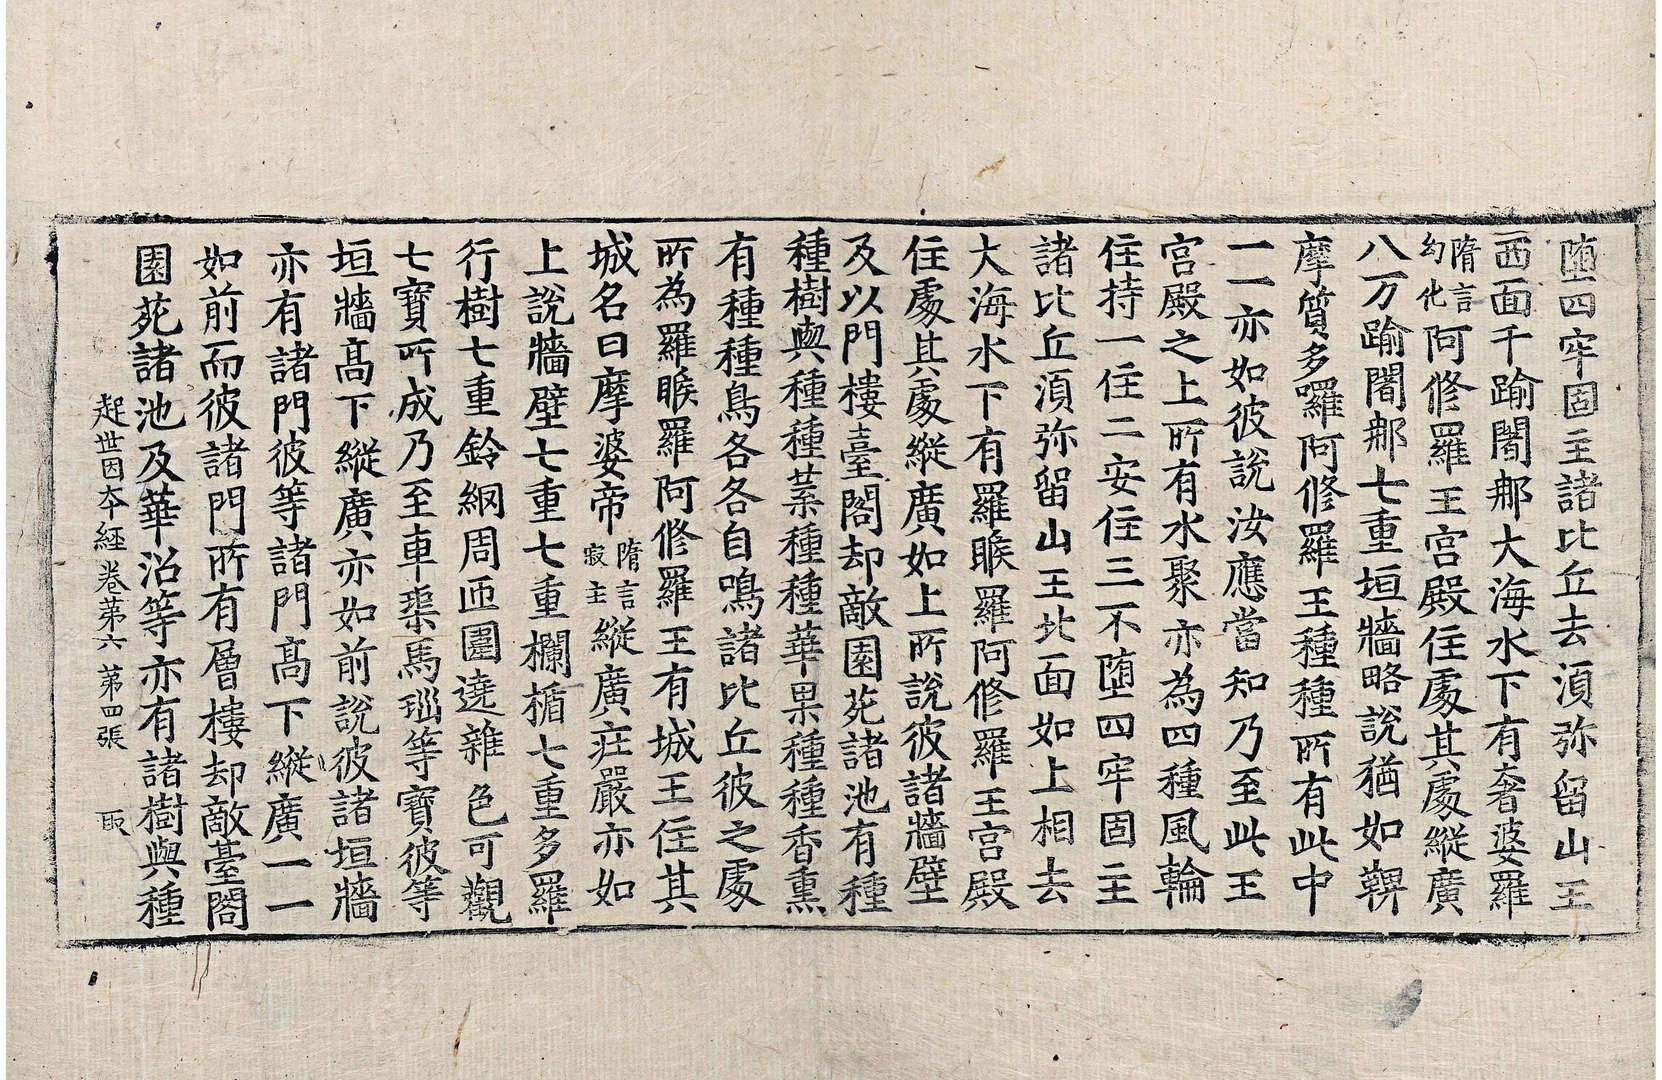 墮四牢固主諸比丘去湏弥留山王
西面千踰闍那大海水下有奢婆羅
隋言幻化阿修羅王宮殿住處其處縱廣
八万踰闍那七重垣牆略說猶如鞞
摩質多囉阿修羅王種種所有此中
一一亦如彼說汝應當知乃至此王
宮殿之上所有水聚亦為四種風輪
住持一住二安住三不墮四牢固主
諸比丘湏弥留山王北面如上相去
大海水下有羅睺羅阿修羅王宮殿
住處其處縱廣如上所說彼諸牆壁
及以門樓臺閣却敵園苑諸池有種
種樹與種種葉種種華果種種香熏
有種種鳥各各自鳴諸比丘彼之處
所為羅睺羅阿修羅王有城王住其
城名曰摩婆帝隋言寂主縱廣莊嚴亦如
上說牆壁七重七重欄楯七重多羅
行樹七重鈴網周迊圍遶雜色可觀
七寶所成乃至車𤦲馬瑙等寶彼等
垣牆高下縱廣亦如前說彼諸垣牆
亦有諸門彼等諸門高下縱廣一一
如前而彼諸門所有層樓却敵臺閣
園苑諸池及華沼等亦有諸樹與種
起世因本經卷第六 第四張 取